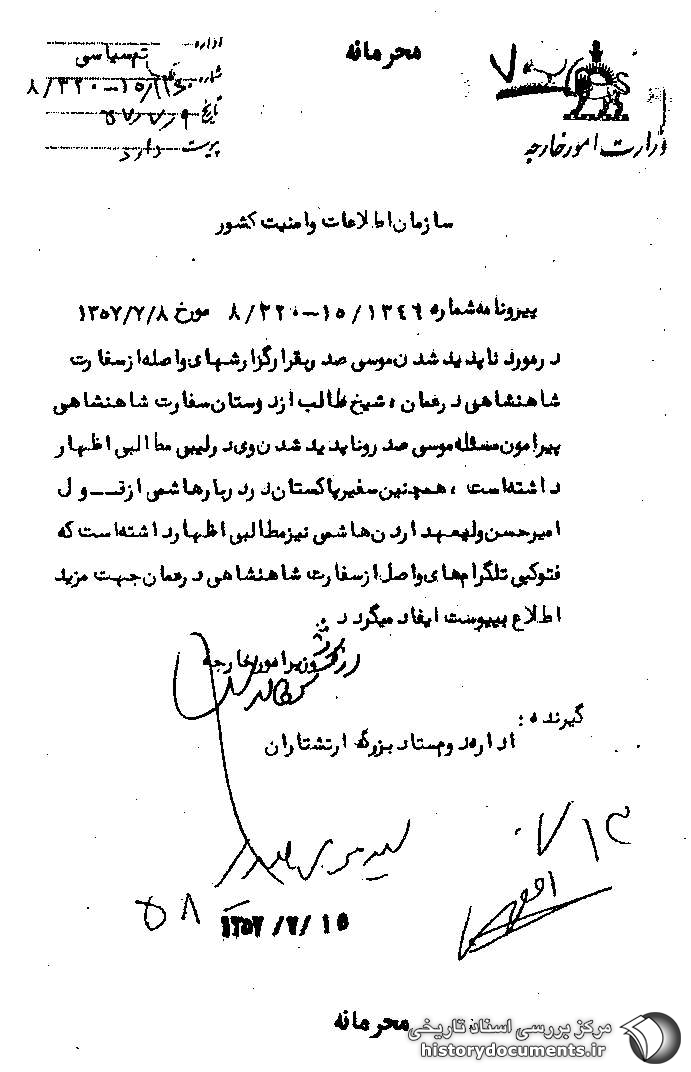 محرمانه
وزارت امور خارجه
اداره نهم سیاسی
شماره
تاریخ ۵۷/۷/۹
پیوست دارد
سازمان اطلاعات و امنیت کشور
پیرو نامه شماره ۱۳٤٦/۱۵-۳۲۰/۸ مورخ ۱۳۵۷/۷/۸
در مورد ناپدید شدن موسی صدر بقرار گزارشهای واصله از سفارت
شاهنشاهی در عمان ، شیخ طالب از دوستان سفارت شاهنشاهی
پیرامون مسئله موسی صدر و ناپدید شدن وی در لیبی مطالبی اظهار
داشته است ، همچنین سفیر پاکستان در دربار هاشمی از قـــول
امیر حسن ولیعهد اردن هاشمی نیز مطالبی اظهار داشته است که
فتوکپی تلگرام های واصل از سفارت شاهنشاهی در عمان جهت مزید
اطلاع بپیوست ایفاد میگردد .
وزیر امور خارجه
گیرنده :
اداره دوم ستاد بزرگ ارتشتاران
۷/۱۳
۵۸
۱۳۵۷/۷/۱۵
محرمانه
مرکز بررسی اسناد تاریخی
historydocuments.ir